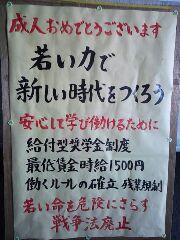 成人おめでとうございます
若い力で
新しい時代をつくろう
安心して学び働けるために
給付型奨学金制度
最低賃金時給1500円
働くルールの確立 残業規制
若い命を危険にさらす
戦争法廃止